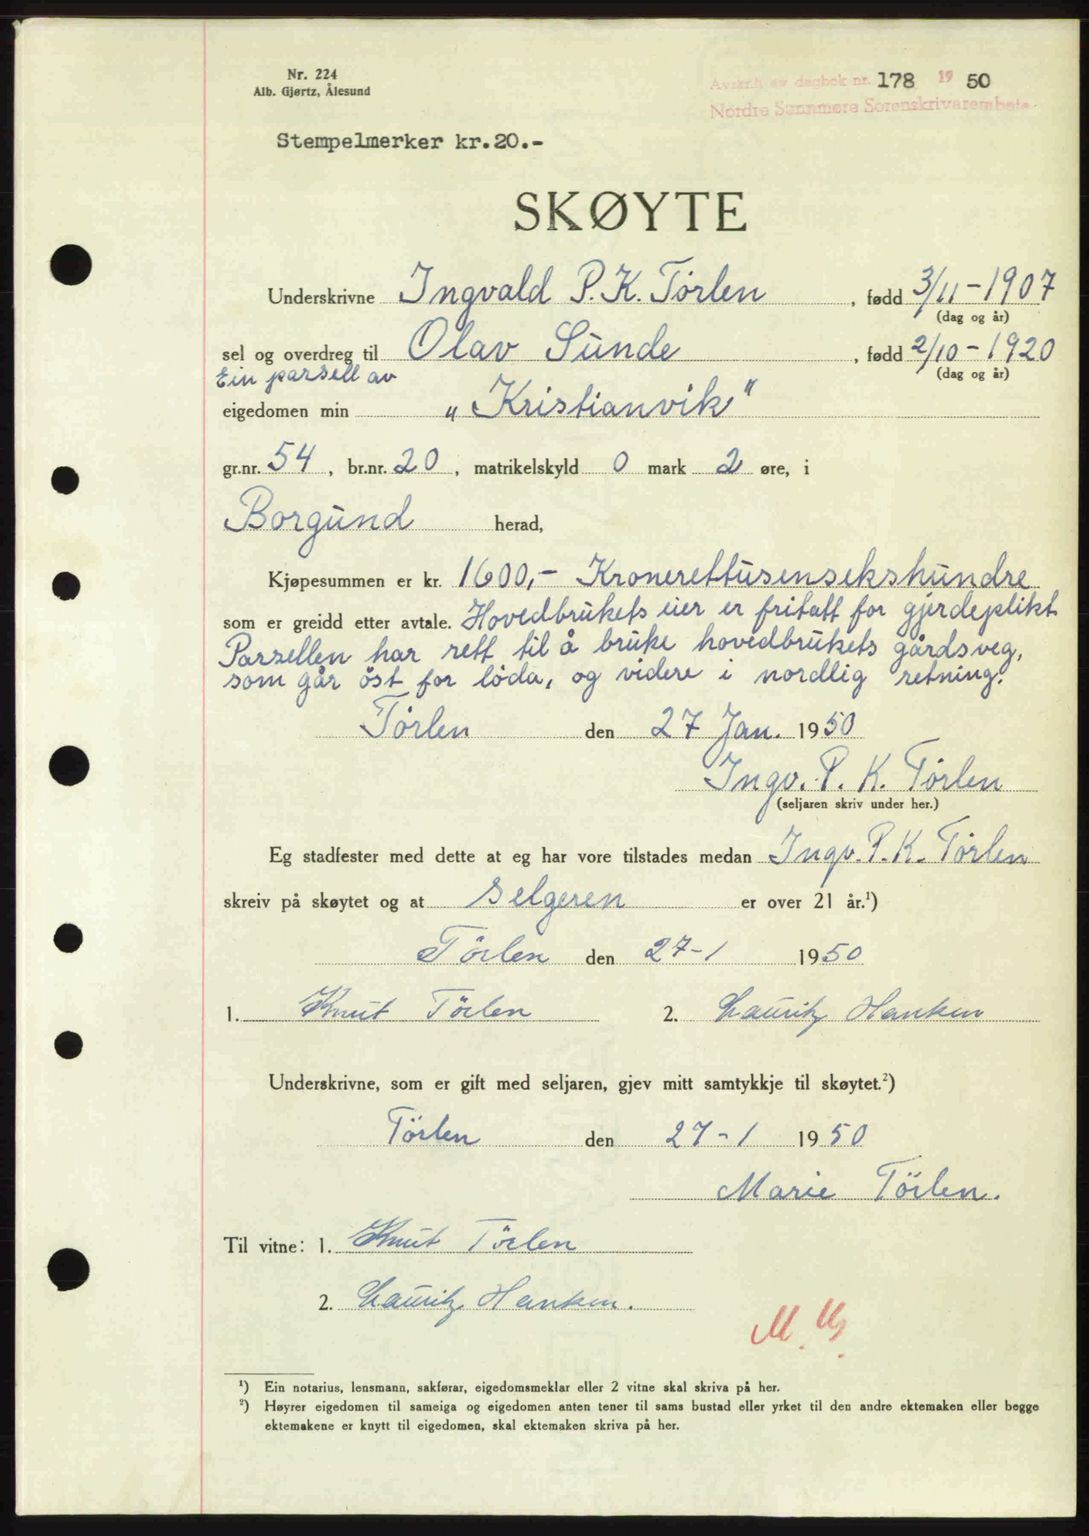 Nr. 224
Alb. Gjørtz, Ålesund
Avskrh. av dagbok nr. 178 19 50
Nordre Sunnmøre Sorenskrivarembete
Stempelmerker kr.20.-
SKØYTE
Underskrivne Ingvald P. K. Tørlen, fødd 3/11-1907
(dag og år)
sel og overdreg til Olav Sunde, fødd 2/10-1920
(dag og år)
Ein parsell av
eigedomen min "Kristianvik"
gr.nr. 54, br.nr. 20, matrikelskyld 0 mark 2 øre, i
Borgund herad,
Kjøpesummen er kr. 1600,- Kronerettusensekshundre
som er greidd etter avtale. Hovedbrukets eier er fritatt for gjerdeplikt
Parsellen har rett til å bruke hovedbrukets gårdsveg,
som går öst for löda, og videre i nordlig retning.
Tørlen den 27 Jan. 1950
Ingv. P. K. Tørlen
(seljaren skriv under her.)
Eg stadfester med dette at eg har vore tilstades medan Ingv. P. K. Tørlen
skreiv på skøytet og at Selgeren er over 21 år.¹)
Törlen den 27-1 1950
1. Knut Törlen 2. Lauritz Hanken
Underskrivne, som er gift med seljaren, gjev mitt samtykkje til skøytet.²)
Törlen den 27-1 1950
Marie Törlen.
Til vitne: 1. Knut Törlen
2. Lauritz Hanken.
¹) Ein notarius, lensmann, sakførar, eigedomsmeklar eller 2 vitne skal skriva på her.
²) Høyrer eigedomen til sameiga og eigedomen anten tener til sams bustad eller yrket til den andre ektemaken eller begge
ektemakene er knytt til eigedomen, skal ektemaken skriva på her.